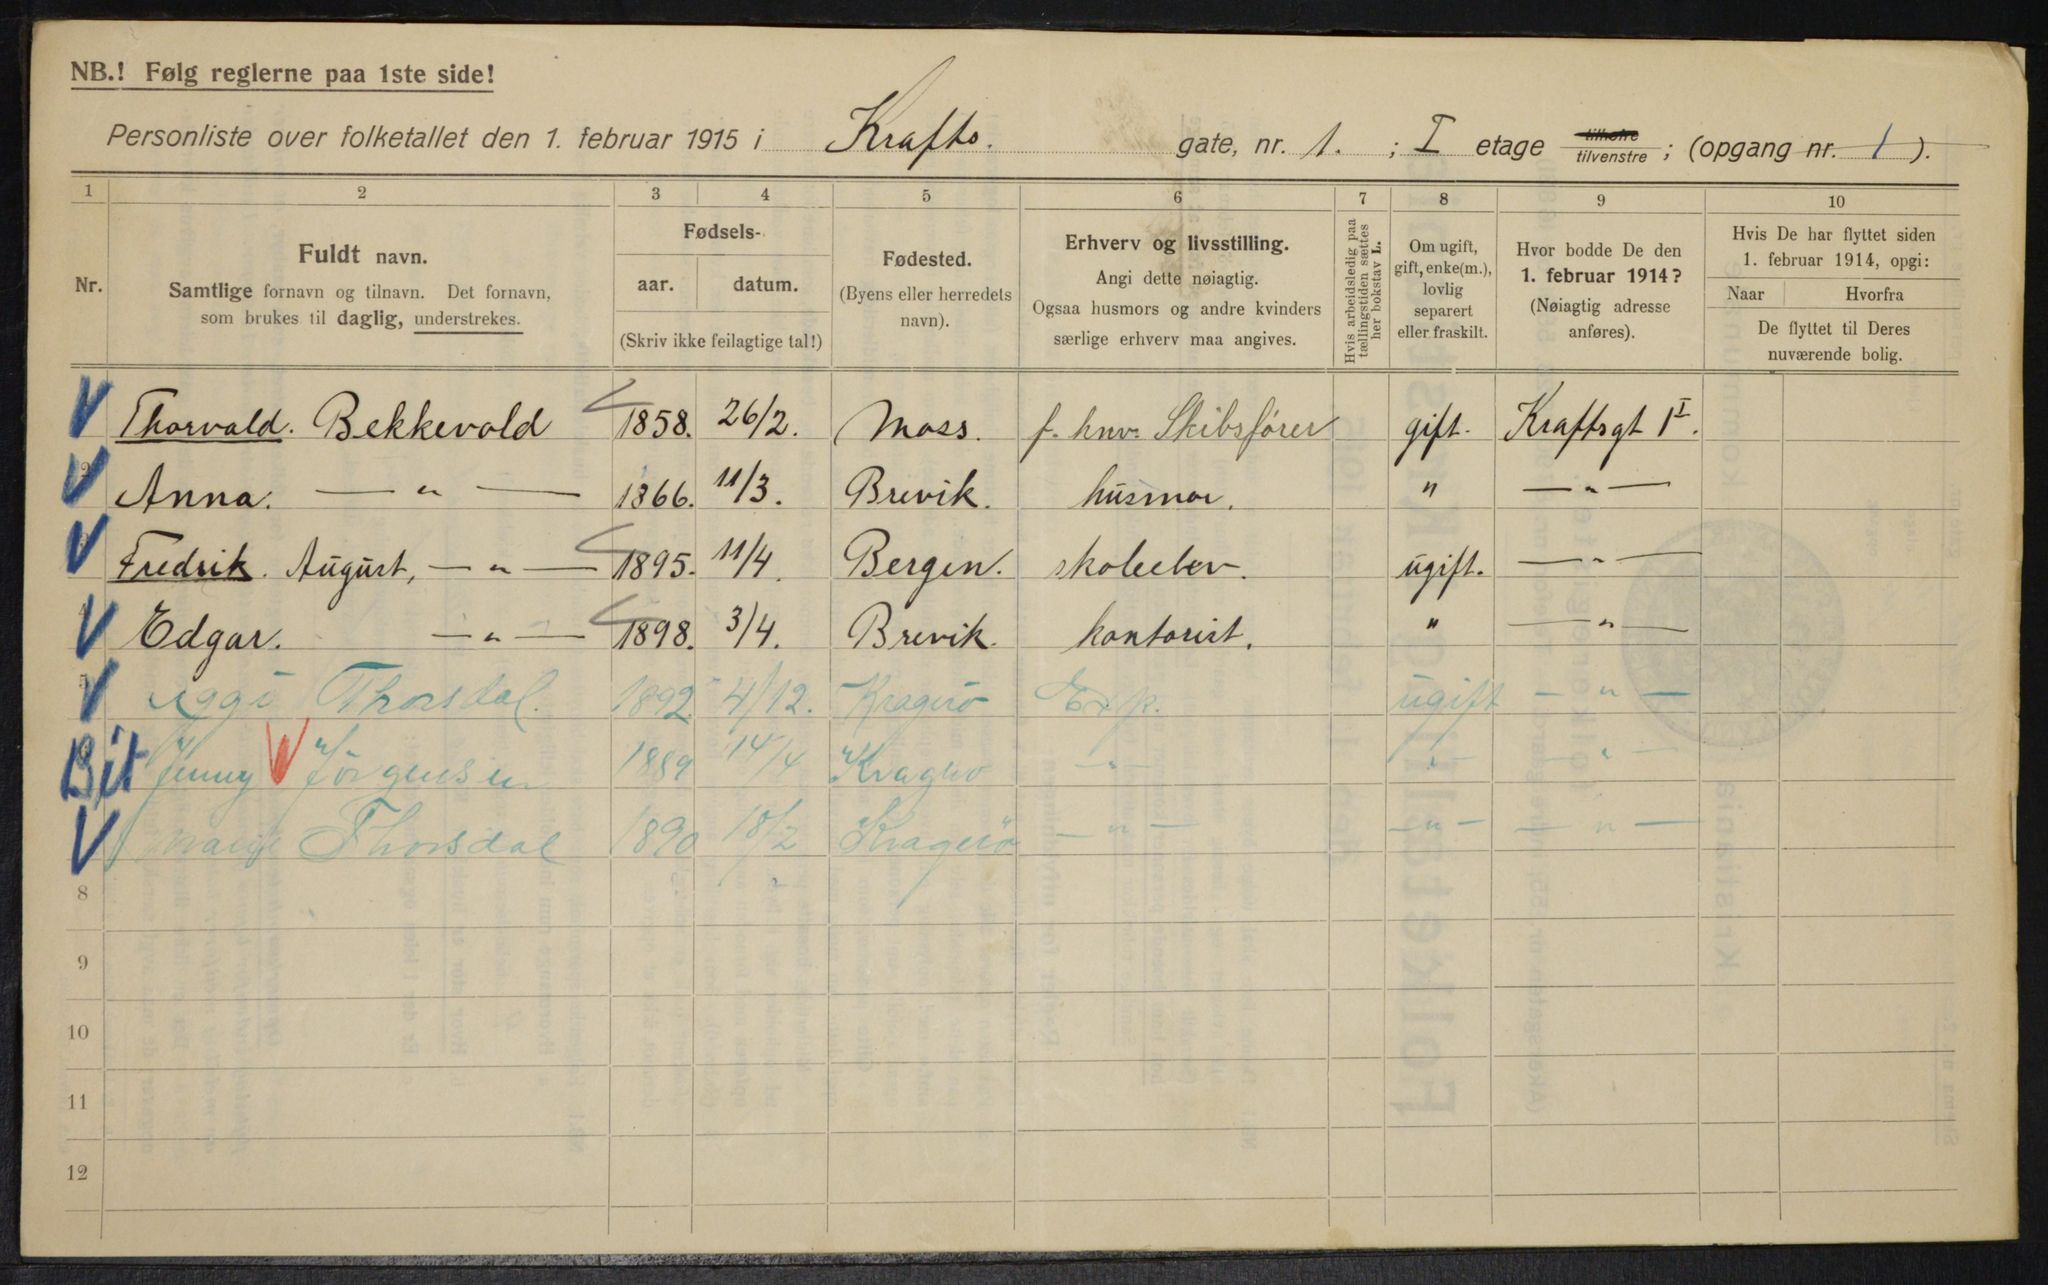 NB.! Følg reglerne paa 1ste side!
Personliste over folketallet den 1. februar 1915 i Krafts. gate, nr. 1. ; I etage tilhøire tilvenstre ; (opgang nr. 1 ).
1 2 3 4 5 6 7 8 9 10
Nr.
Fuldt navn.
Samtlige fornavn og tilnavn. Det fornavn,
som brukes til daglig, understrekes.
Fødsels-
aar. datum.
(Skriv ikke feilagtige tal!)
Fødested.
(Byens eller herredets
navn).
Erhverv og livsstilling.
Angi dette nøiagtig.
Ogsaa husmors og andre kvinders
særlige erhverv maa angives.
Hvis arbeidsledig paa
tællingstiden sættes
her bokstav L.
Om ugift,
gift, enke(m.),
lovlig
separert
eller fraskilt.
Hvor bodde De den
1. februar 1914?
(Nøiagtig adresse
anføres).
Hvis De har flyttet siden
1. februar 1914, opgi:
Naar Hvorfra
De flyttet til Deres
nuværende bolig.
Thorvald. Bekkevold 1858. 26/2. Moss. f. hnv. Skibsfører gift. Kraftsgt 1 I.
2 Anna. — „ — 1866. 11/3. Brevik. husmor. „ — „ —
3 Fredrik. August, — „ — 1895. 11/4. Bergen. skoleelev. ugift. — „ —
4 Edgar. — „ — 1898. 3/4. Brevik. kontorist. „ — „ —
5 Thorsdal. 1892 4/12. Kragerø Exp. ugift — „ —
Bit Jenny Jörgensen 1889 14/4 Kragerø — „ — — „ — — „ —
Thorsdal 1890 18/2 Kragerö — „ — — „ — — „ —
8
9
10
11
12